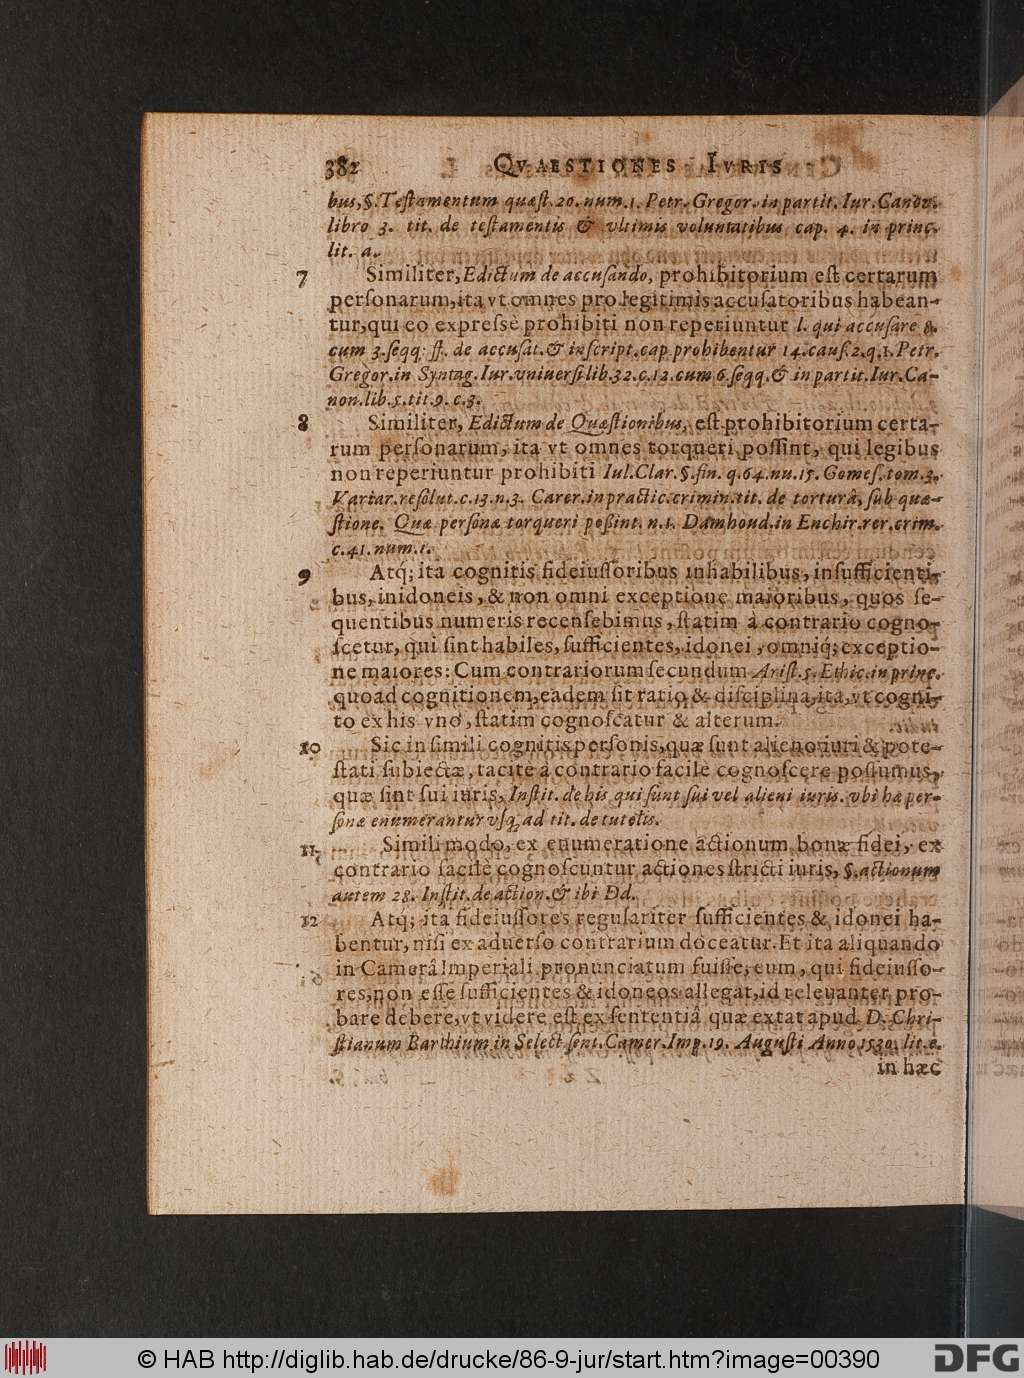 382 QVAESTIONES IVRIS
bus, §. Testamentum quæst. 20. num. 1. Petr. Gregor. in partit. Iur. Canon.
libro 3. tit. de testamentis & vltimis voluntatibus cap. 4. in princ.
lit. a.
7 Similiter, Edictum de accusando, prohibitorium est certarum
personarum, ita vt omnes pro legitimis accusatoribus habean-
tur, qui eo expressè prohibiti non reperiuntur l. qui accusare 8.
cum 3. seqq; ff. de accusat. & inscript. cap. prohibentur 14. caus. 2. q. 1. Petr.
Gregor. in Syntag. Iur. vniuersi lib. 32. c. 12. cum 6. seqq. & in partit. Iur. Ca-
non. lib. 5. tit. 9. c. 3.
8 Similiter, Edictum de Quæstionibus, est prohibitorium certa-
rum personarum, ita vt omnes torqueri possint, qui legibus
non reperiuntur prohibiti Iul. Clar. §. fin. q. 64. nu. 15. Gomes. tom. 3.
Variar. resolut. c. 13. n. 3. Carer. in practic. crimin. tit. de torturâ, sub quæ-
stione. Quæ personæ torqueri possint. n. 1. Damhoud. in Enchir. rer. crim.
c. 41. num. 1.
9 Atq; ita cognitis fideiussoribus inhabilibus, insufficienti-
bus, inidoneis, & non omni exceptione maioribus, quos se-
quentibus numeris recensebimus, statim à contrario cogno-
scetur, qui sint habiles, sufficientes, idonei, omniq; exceptio-
ne maiores: Cum contrariorum secundum Arist. 5. Ethic. in princ.
quoad cognitionem, eadem sit ratio & disciplina, ita, vt cogni-
to ex his vno, statim cognoscatur & alterum.
10 Sic in simili cognitis personis, quæ sunt alieno iuri & pote-
stati subiectæ, tacitè à contrario facilè cognoscere possumus,
quæ sint sui iuris, Instit. de his qui sunt sui vel alieni iuris. vbi hæ per-
sonæ enumerantur vsq; ad tit. de tutelis.
11 Simili modo, ex enumeratione actionum bonæ fidei, ex
contrario facilè cognoscuntur actiones stricti iuris, §. actionum
autem 28. Instit. de action. & ibi Dd.
12 Atq; ita fideiussores regulariter sufficientes & idonei ha-
bentur, nisi ex aduerso contrarium doceatur. Et ita aliquando
in Camerâ Imperiali pronunciatum fuisse, eum, qui fideiusso-
res, non esse sufficientes & idoneos allegat, id releuanter pro-
bare debere, vt videre est ex sententiâ quæ extat apud D. Chri-
stianum Barthium in Select. sent. Camer. Imp. 19. Augusti Anno 1530. lit. e.
in hæc
© HAB http://diglib.hab.de/drucke/86-9-jur/start.htm?image=00390
DFG